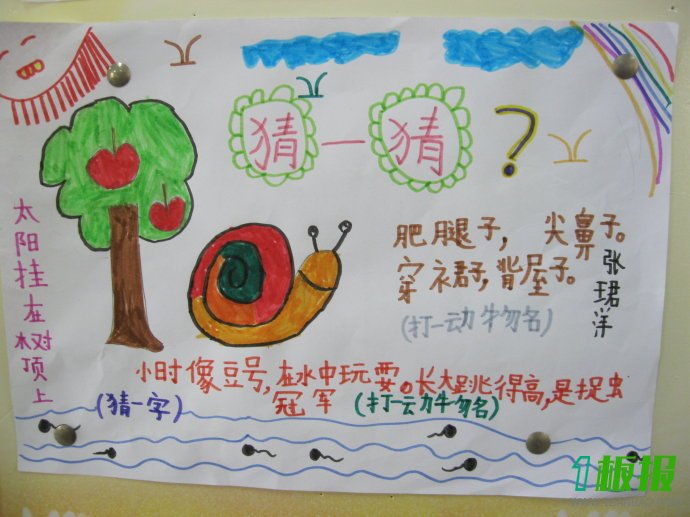 猜一猜?
太阳挂在树顶上
(猜一字)
肥腿子，尖鼻子。
穿衣裙子，背屋子。
(打一动物名)
张珺洋
小时像豆号，在水中玩耍。长大跳得高，是捉虫
冠军 (打一动物名)
1板报